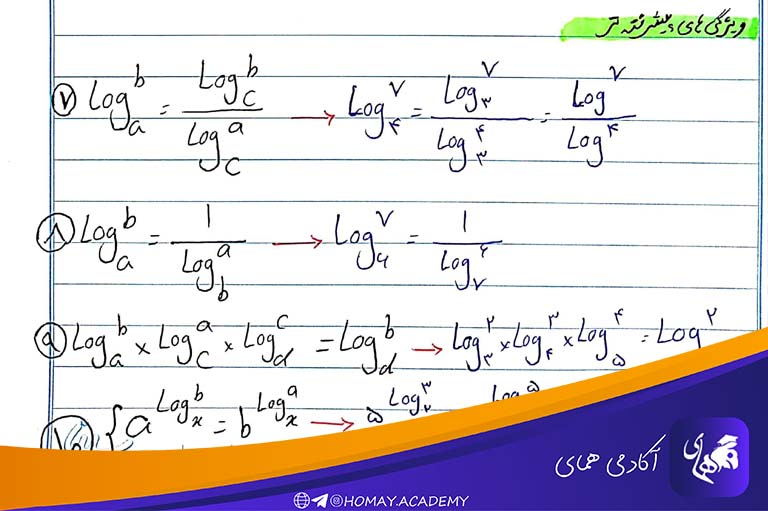 ویژگی های پیشرفته تر
۷ Log_a^b = Log_c^b / Log_c^a → Log_۴^۷ = Log_۳^۷ / Log_۳^۴ = Log^۷ / Log^۴
۸ Log_a^b = 1 / Log_b^a → Log_۶^۷ = 1 / Log_۷^۶
۹ Log_a^b × Log_c^a × Log_d^c = Log_d^b → Log_۳^۲ × Log_۴^۳ × Log_۵^۴ = Log^۲
۱۰ { a^{Log_x^b} = b^{Log_x^a} → ۵^{Log_۲^۳}
آکادمی همای
همای
@HOMAY.ACADEMY